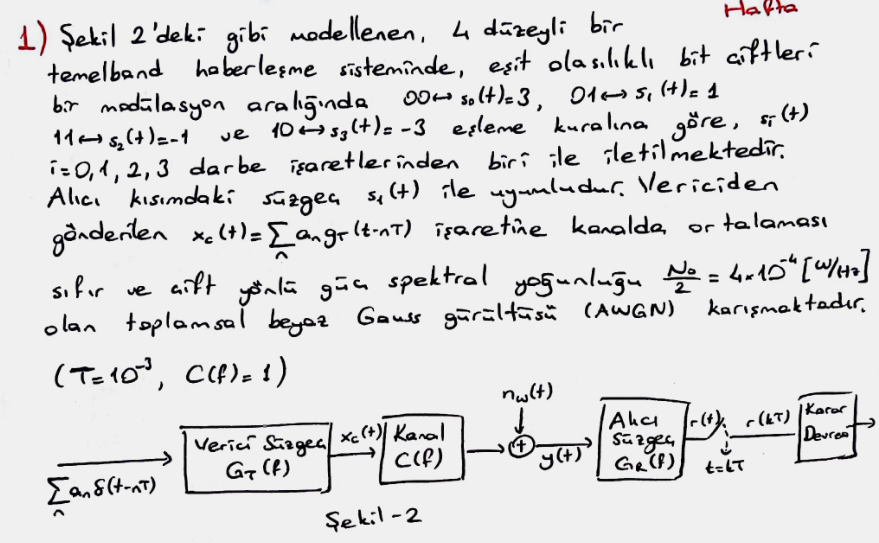 Hafta
1) Şekil 2'deki gibi modellenen, 4 düzeyli bir
temelband haberleşme sisteminde, eşit olasılıklı bit çiftleri
bir modülasyon aralığında 00↔s₀(t)=3, 01↔s₁(t)=1
11↔s₂(t)=-1 ve 10↔s₃(t)=-3 eşleme kuralına göre, sᵢ(t)
i=0,1,2,3 darbe işaretlerinden biri ile iletilmektedir.
Alıcı kısımdaki süzgeç s₁(t) ile uyumludur. Vericiden
gönderilen x_c(t)=∑_n a_n g_T(t-nT) işaretine kanalda ortalaması
sıfır ve çift yönlü güç spektral yoğunluğu N₀/2 = 4×10⁻⁴ [W/Hz]
olan toplamsal beyaz Gauss gürültüsü (AWGN) karışmaktadır.
(T=10⁻³, C(f)=1)
n_w(t)
∑_n a_n δ(t-nT) Verici Süzgeç G_T(f) x_c(t) Kanal C(f) + y(t) Alıcı Süzgeç G_R(f) r(t) t=kT r(kT) Karar Devresi
Şekil-2